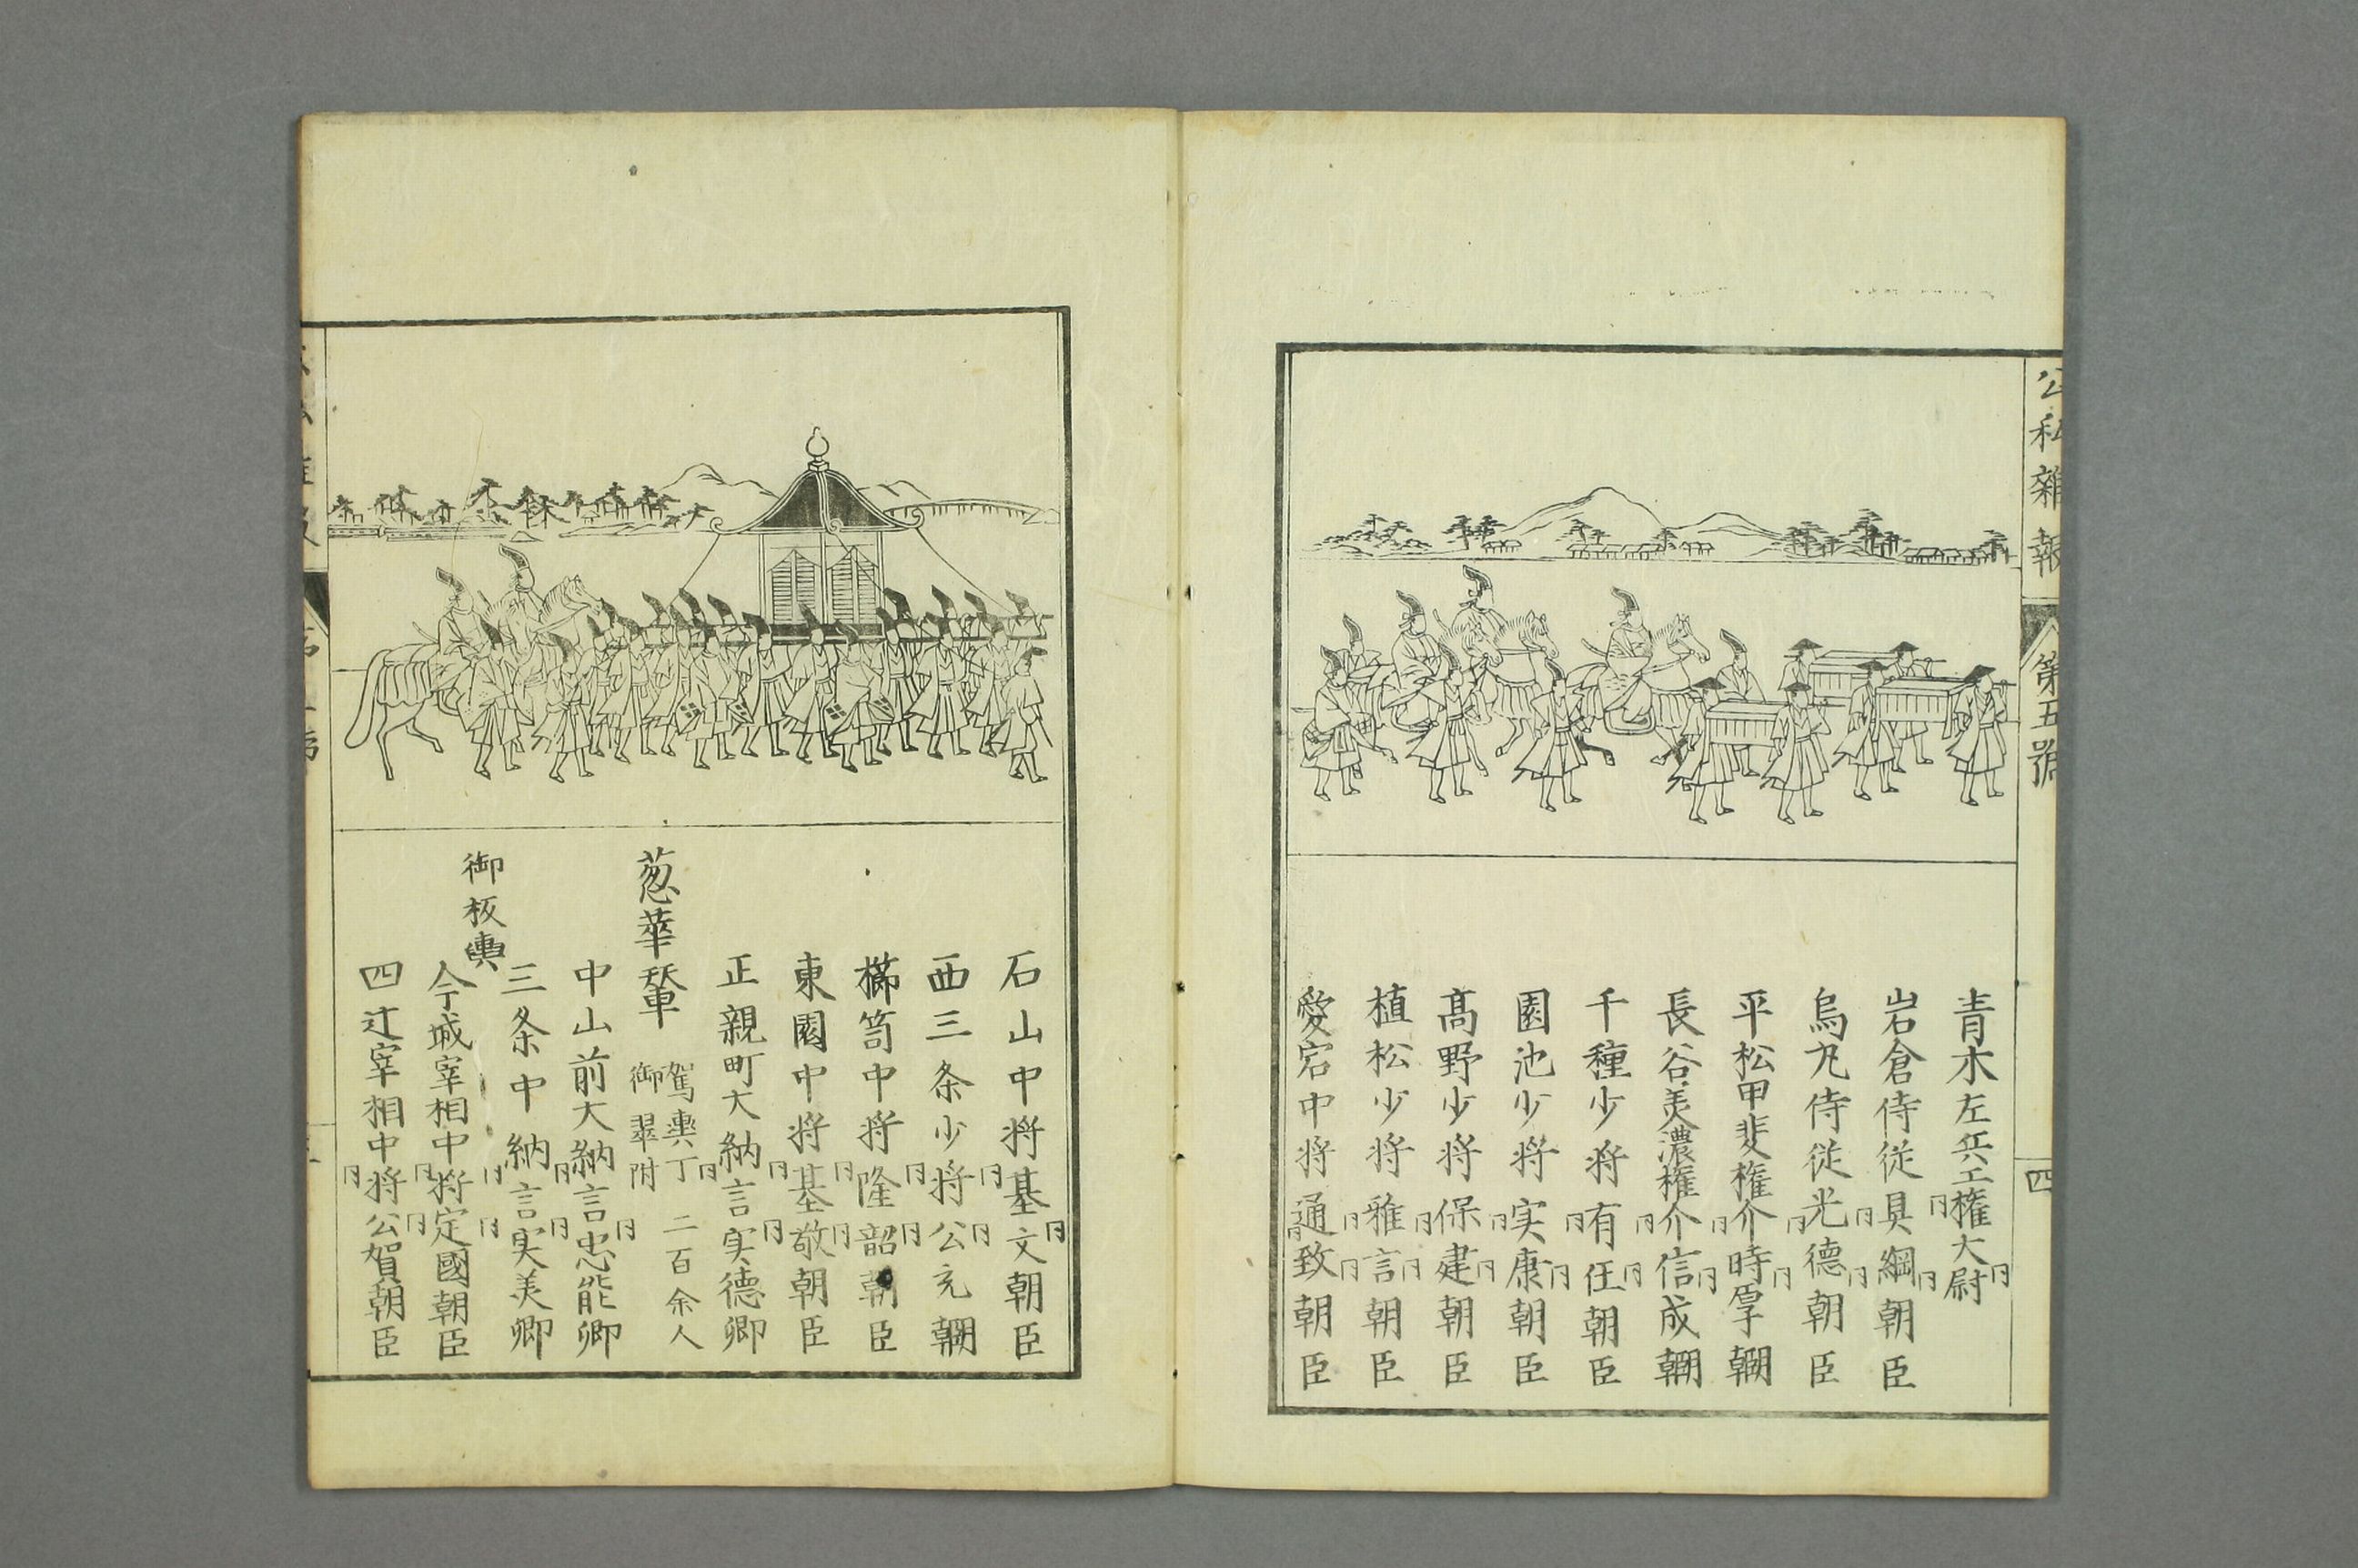 公私雑報
第五號
四
青木左兵工権大尉
岩倉侍従具綱朝臣
烏丸侍従光德朝臣
平松甲斐権介時厚朝臣
長谷美濃権介信成朝臣
千種少将有任朝臣
園池少将実康朝臣
髙野少将保建朝臣
植松少将雅言朝臣
愛宕中将通致朝臣
石山中将基文朝臣
西三条少将公允朝臣
櫛笥中将隆韶朝臣
東園中将基敬朝臣
正親町大納言実德卿
葱華輦 駕輿丁 二百余人
御翠附
中山前大納言忠能卿
三条中納言実美卿
御板輿
今城宰相中将定國朝臣
四辻宰相中将公賀朝臣